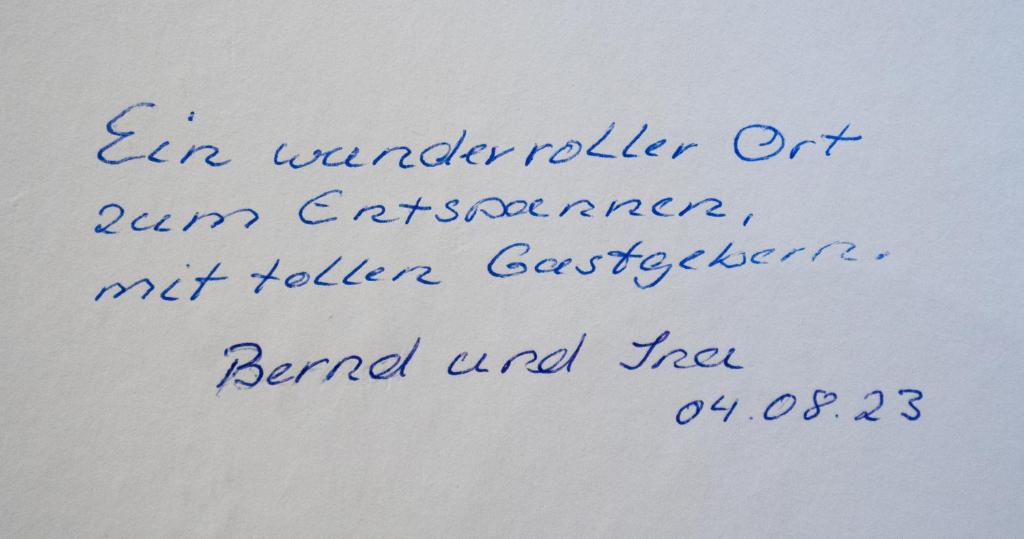 Ein wundervoller Ort
zum Entspannen,
mit tollen Gastgebern.
Bernd und Ina
04.08.23